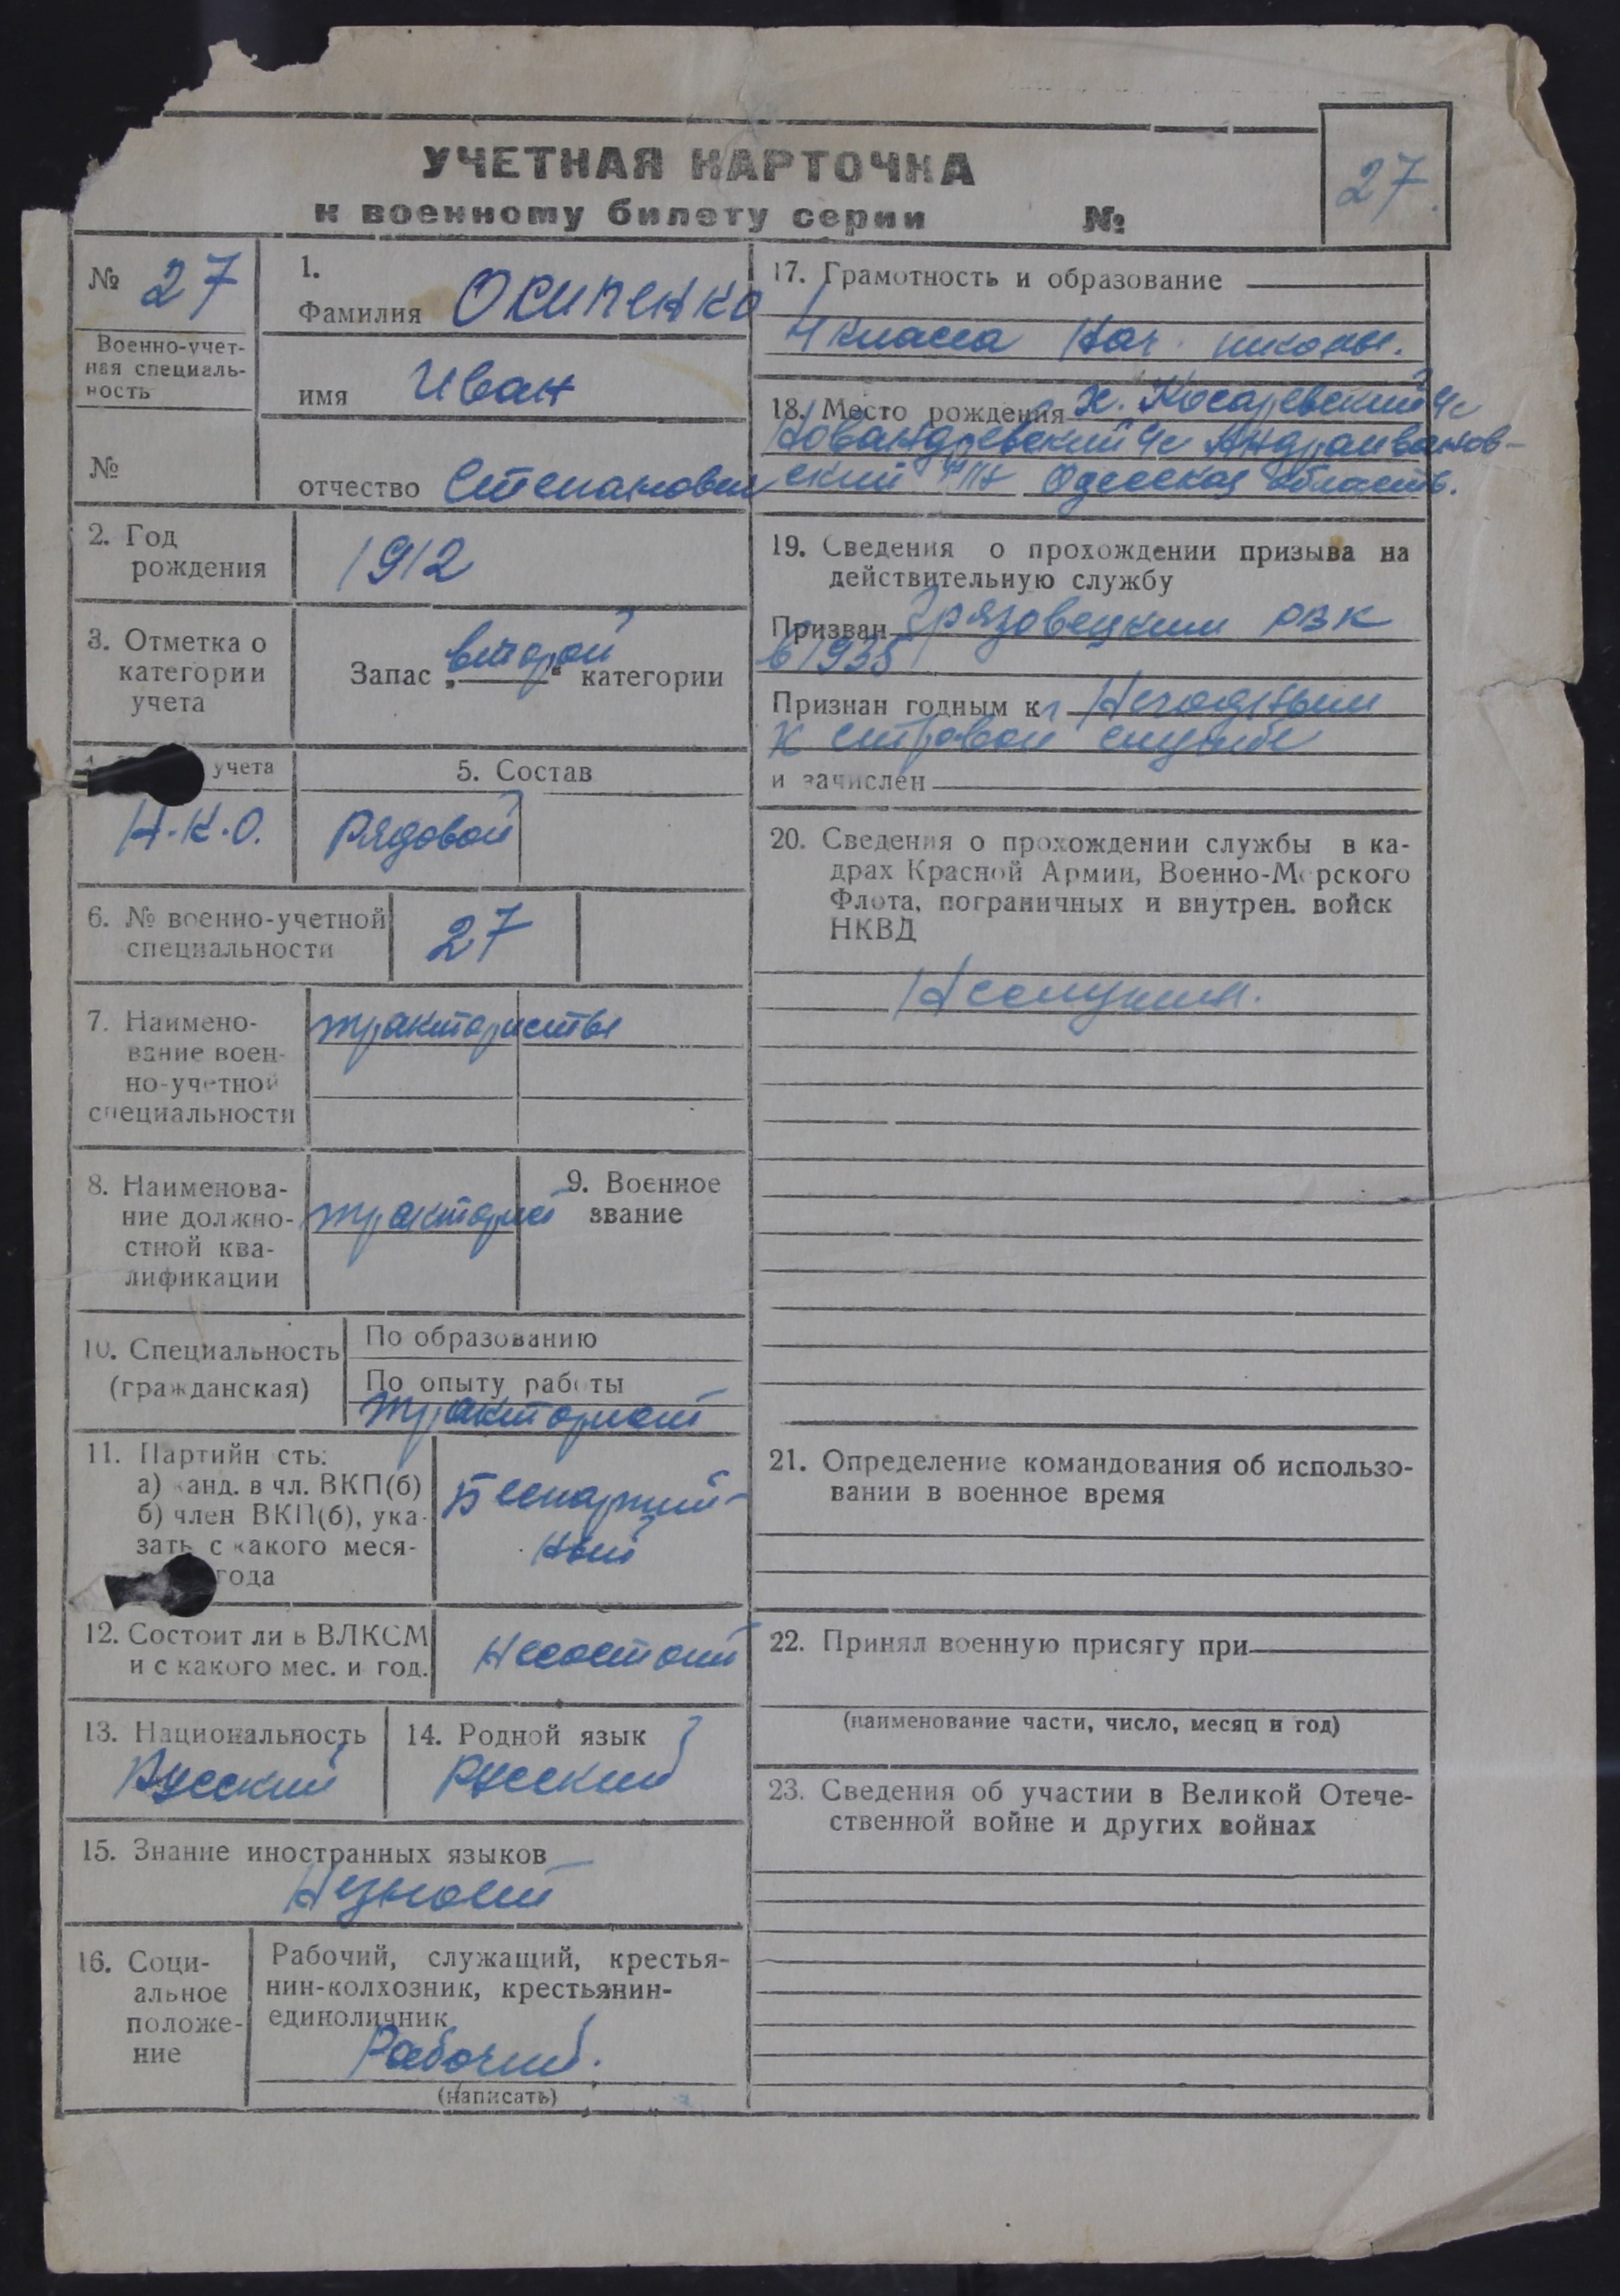 УЧЕТНАЯ КАРТОЧКА
к военному билету серии №
27.
№ 27
Военно-учет-
ная специаль-
ность
№
1.
Фамилия Осипенко
имя Иван
отчество Степанович
2. Год
рождения
1912
3. Отметка о
категории
учета
Запас „второй“ категории
учета
Н.К.О.
5. Состав
Рядовой
6. № военно-учетной
специальности
27
7. Наимено-
вание воен-
но-учетной
специальности
трактористы
8. Наименова-
ние должно-
стной ква-
лификации
тракторист
9. Военное
звание
10. Специальность
(гражданская)
По образованию
По опыту работы
тракторист
11. Партийн сть:
а) канд. в чл. ВКП(б)
б) член ВКП(б), ука-
зать с какого меся-
года
Беспартий-
ный
12. Состоит ли в ВЛКСМ
и с какого мес. и год.
Несостоит
13. Национальность
Русский
14. Родной язык
Русский
15. Знание иностранных языков
Незнает
16. Соци-
альное
положе-
ние
Рабочий, служащий, крестья-
нин-колхозник, крестьянин-
единоличник
Рабочий.
(написать)
17. Грамотность и образование
4 класса Нач. школы.
18. Место рождения х. Косаревский
Андрииванов-
ский Одесская область.
19. Сведения о прохождении призыва на
действительную службу
Призван Грязовецким РВК
в 1935
Признан годным к Негодным
к строевой службе
и зачислен
20. Сведения о прохождении службы в ка-
драх Красной Армии, Военно-Морского
Флота, пограничных и внутрен. войск
НКВД
Неслужил.
21. Определение командования об использо-
вании в военное время
22. Принял военную присягу при
(наименование части, число, месяц и год)
23. Сведения об участии в Великой Отече-
ственной войне и других войнах